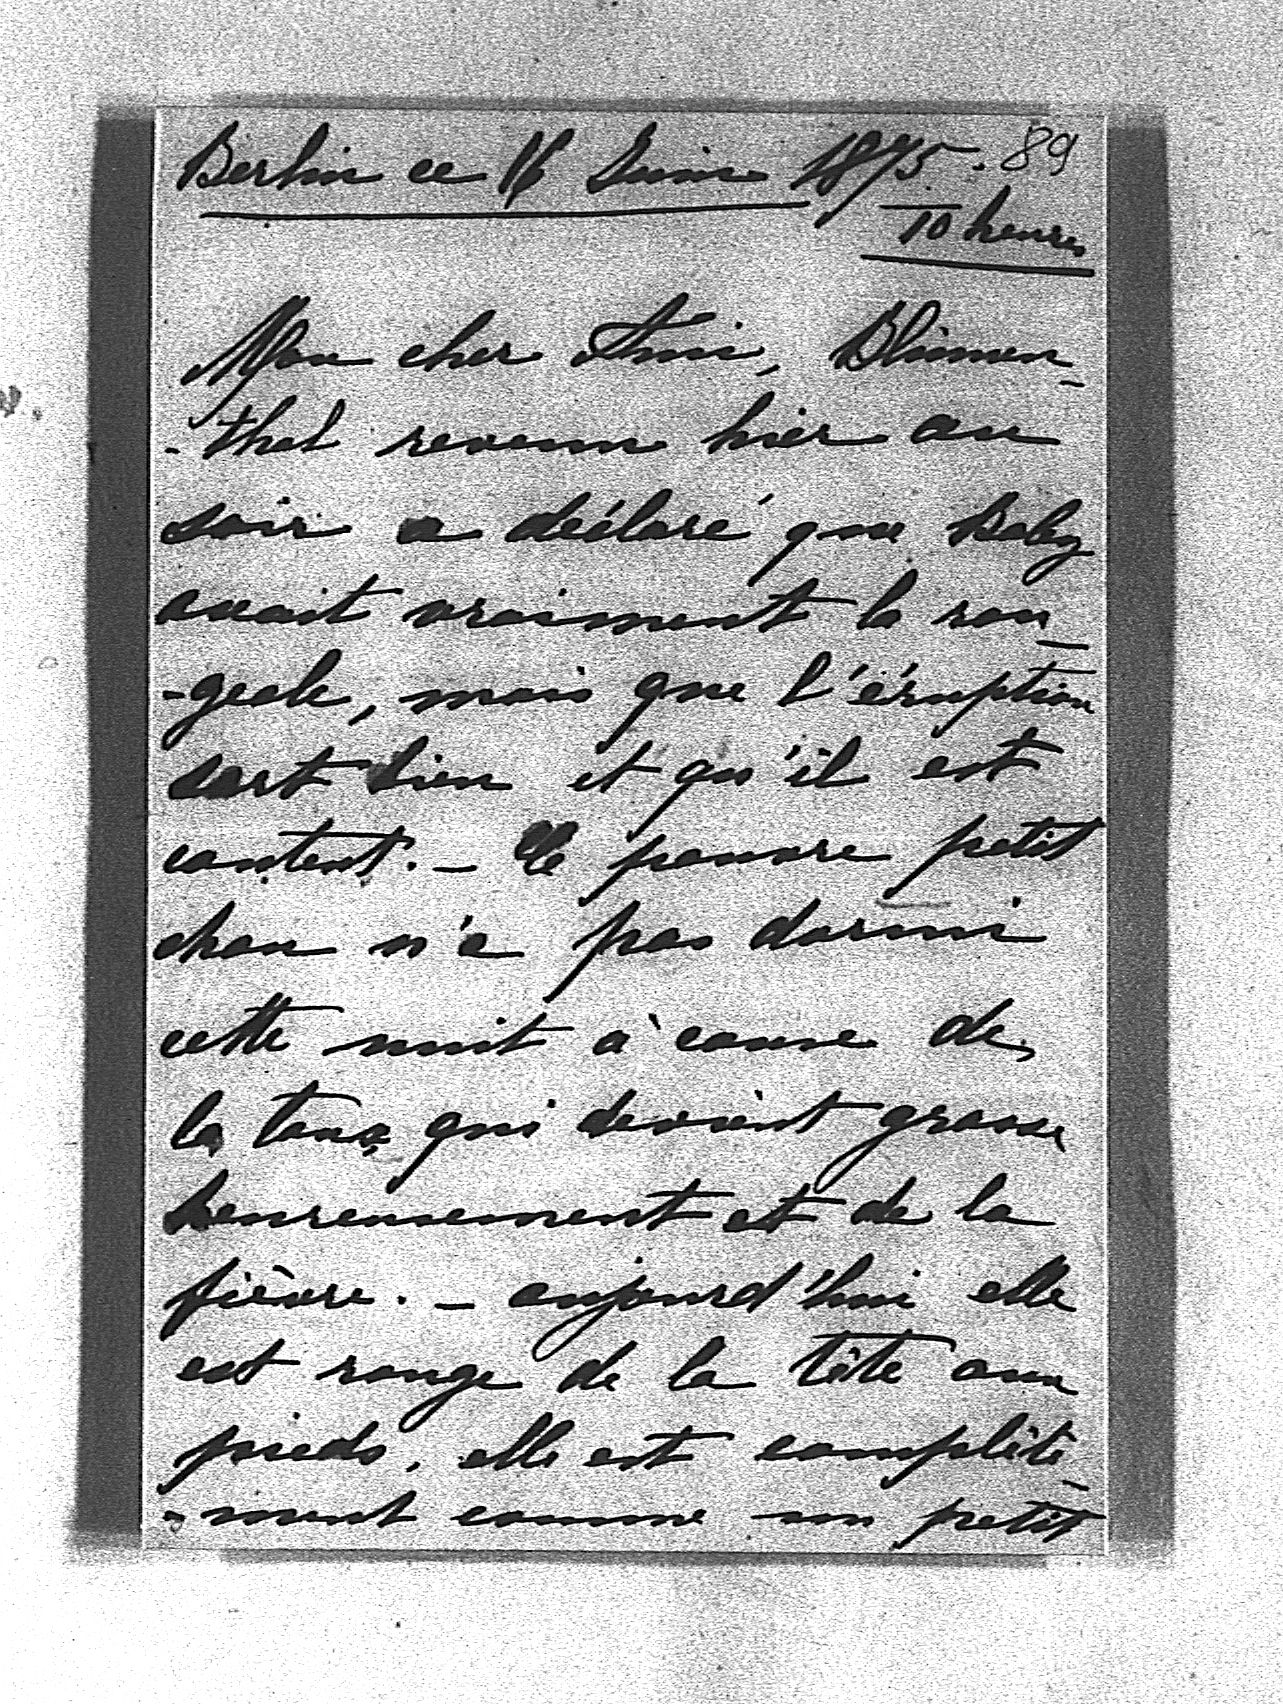 Berlin ce 16 Juin 1895. 89
10 heures
Mon cher Ami, Blumen-
-thal revenu hier au
soir a déclaré que Baby
avait vraiment la rou-
-geole, mais que l'éruption
sort bien et qu'il est
content. - Le pauvre petit
chou n'a pas dormi
cette nuit à cause de
la toux qui devient grasse
heureusement et de la
fièvre. - aujourd'hui elle
est rouge de la tête aux
pieds, elle est complète-
-ment comme un petit